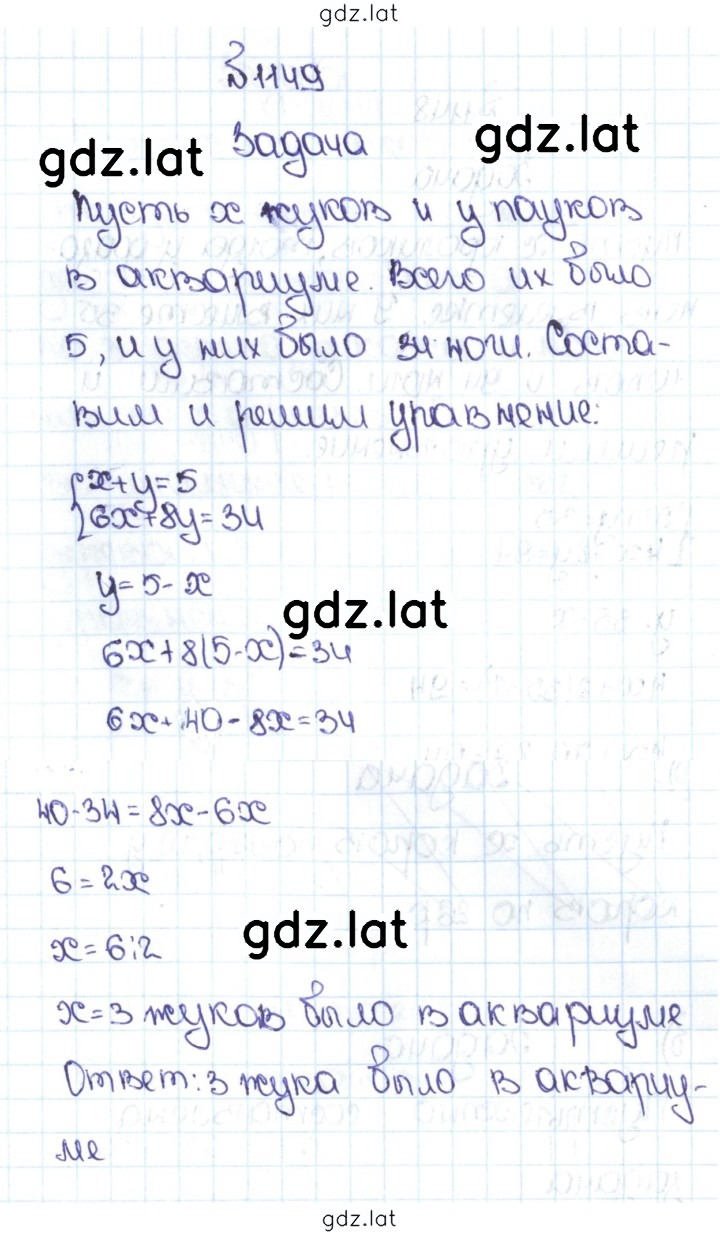 gdz.lat
№1149
gdz.lat Задача gdz.lat
Пусть x жуков и y пауков
в аквариуме. Всего их было
5, и у них было 34 ноги. Соста-
вим и решим уравнение:
{x+y=5
6x+8y=34
y=5-x
gdz.lat
6x+8(5-x)=34
6x+40-8x=34
40-34=8x-6x
6=2x
gdz.lat
x=6:2
x=3 жуков было в аквариуме
Ответ: 3 жука было в аквариу-
ме
gdz.lat